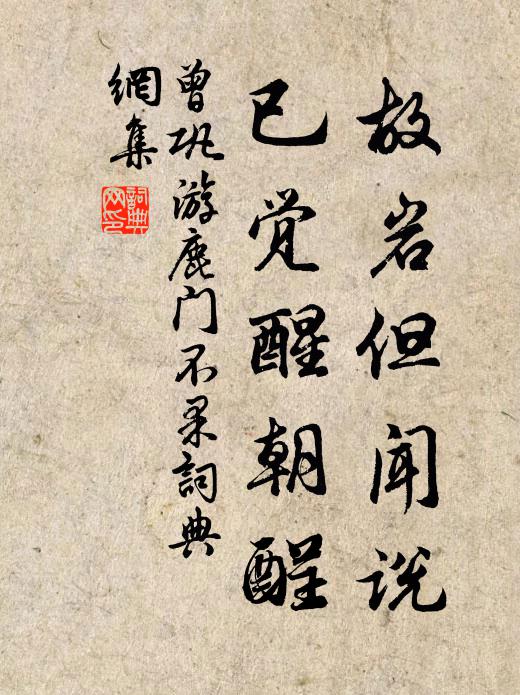 故岩但闻说
已觉醒朝酲
曾巩游鹿门不果词典
網集
詞典
网印